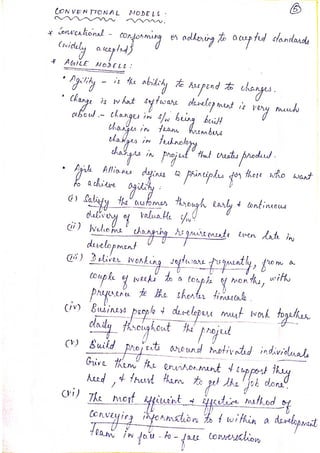 CONVENTIONAL MODELS:
5
* Conventional - conforming or adhering to accepted standards
(widely accepted)
* AGILE MODELS:
• Agility - is the ability to respond to changes.
• Change is what software development is very much
about - changes in s/w being built
changes in team members
changes in technology
changes in project that creates product.
• Agile Alliance defines 12 principles for those who want
to achieve agility:
(i) Satisfy the customer through early & continuous
delivery of valuable s/w
(ii) Welcome changing requirements even late in
development
(iii) Deliver working software frequently, from a
couple of weeks to a couple of months, with
preference to the shorter timescale.
(iv) Business people & developers must work together
daily throughout the project
(v) Build projects around motivated individuals
Give them the environment & support they
need, & trust them to get the job done
(vi) The most efficient & effective method of
conveying information to & within a development
team is face-to-face conversation